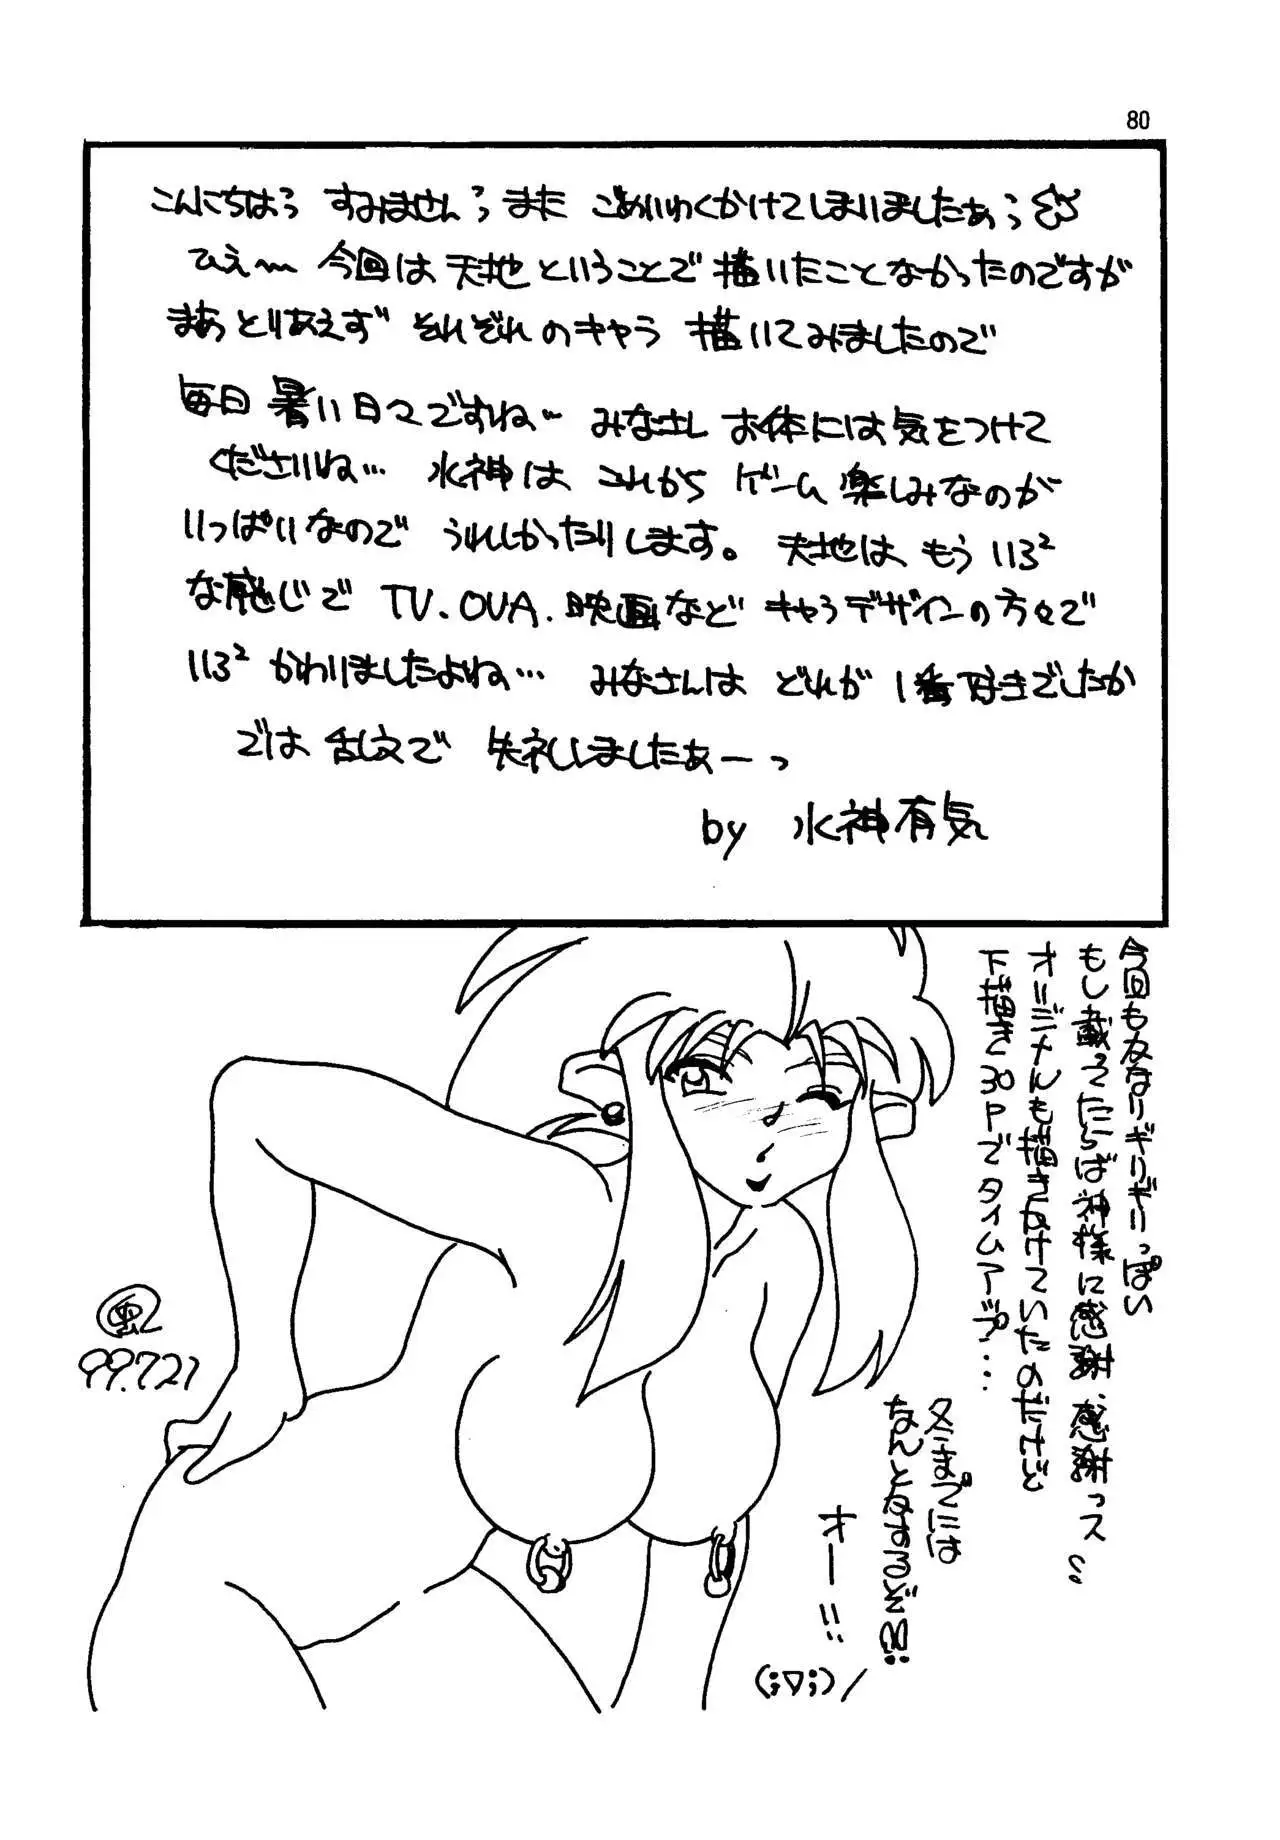 80
こんにちはっ すみませんっ また ごめいわくかけてしまいましたぁっ
ひえ〜 今回は 天地 ということで 描いたことなかったのですが
まあ とりあえず それぞれのキャラ 描いてみましたので
毎日 暑い日々ですね… みなさん お体には気をつけて
くださいね… 水神は これから ゲーム 楽しみなのが
いっぱいなので うれしかったりします。 天地は、もう いろ²
な感じで TV.OVA.映画など キャラデザインの方々で
いろ² かわりましたよね… みなさんは どれが 1番 好きでしたか
では 乱文で 失礼しましたぁーっ
by 水神有気
今回もかなりギリギリっぽい
もし載ってたらば神様に感謝、感謝っス
オリジナルも描きかけていたのだけど
下描き30Pでタイムアップ…
冬までには
なんとかするぞ!!
オー!!
(;▽;)/
99.7.21